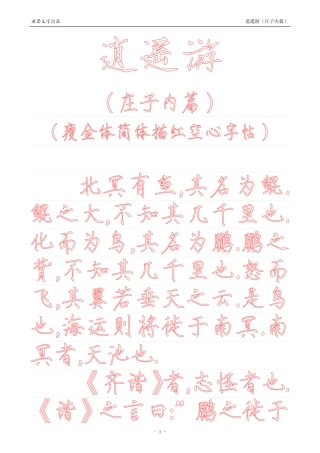 逍遥游（庄子内篇）
逍遥游
（庄子内篇）
（瘦金体简体描红空心字帖）
北冥有鱼,其名为鲲.
鲲之大,不知其几千里也.
化而为鸟,其名为鹏.鹏之
背,不知其几千里也.怒而
飞,其翼若垂天之云.是鸟
也,海运则将徙于南冥.南
冥者,天池也.
《齐谐》者,志怪者也.
《谐》之言曰:“鹏之徙于
- 1 -